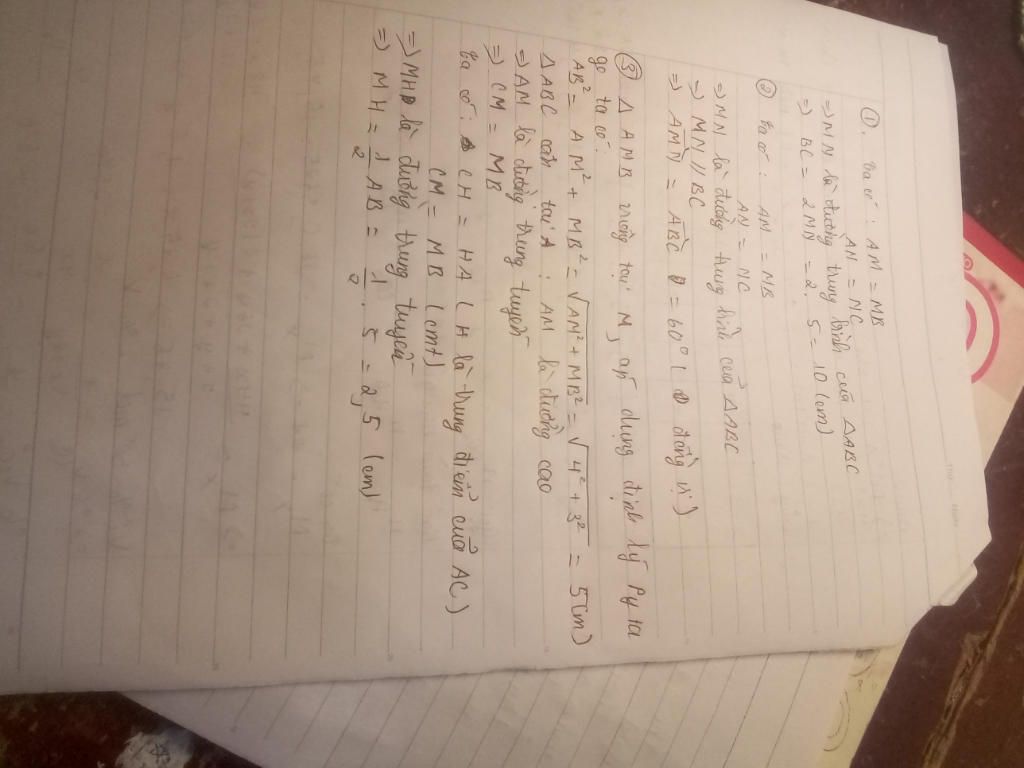 ①. Ta có : AM = MB
AN = NC
=> MN là đường trung bình của △ABC
=> BC = 2MN = 2. 5 = 10 (cm)
② Ta có : AM = MB
AN = NC
=> MN là đường trung bình của △ABC
=> MN // BC
=> AMN̂ = ABĈ = 60° ( đồng vị )
③ △ AMB vuông tại M, áp dụng định lý Pyta
go ta có:
AB² = AM² + MB² = √AM² + MB² = √4² + 3² = 5(cm)
△ ABC cân tại A : AM là đường cao
=> AM là đường trung tuyến
=> CM = MB
Ta có : CH = HA ( H là trung điểm của AC )
CM = MB ( cmt )
=> MH là đường trung tuyến
=> MH = 1/2 AB = 1/2 . 5 = 2,5 (cm)